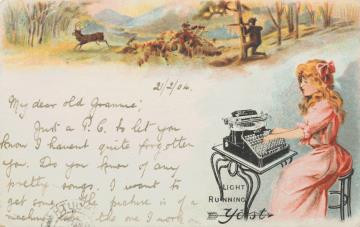 2/2/04.
My dear old Grannie:
Just a P.C. to let you
know I havent quite forgotten
you. Do you know of any
pretty songs. I want to
get some. The picture is of a
machine like the one I work on
LIGHT
RUNNING
Yost